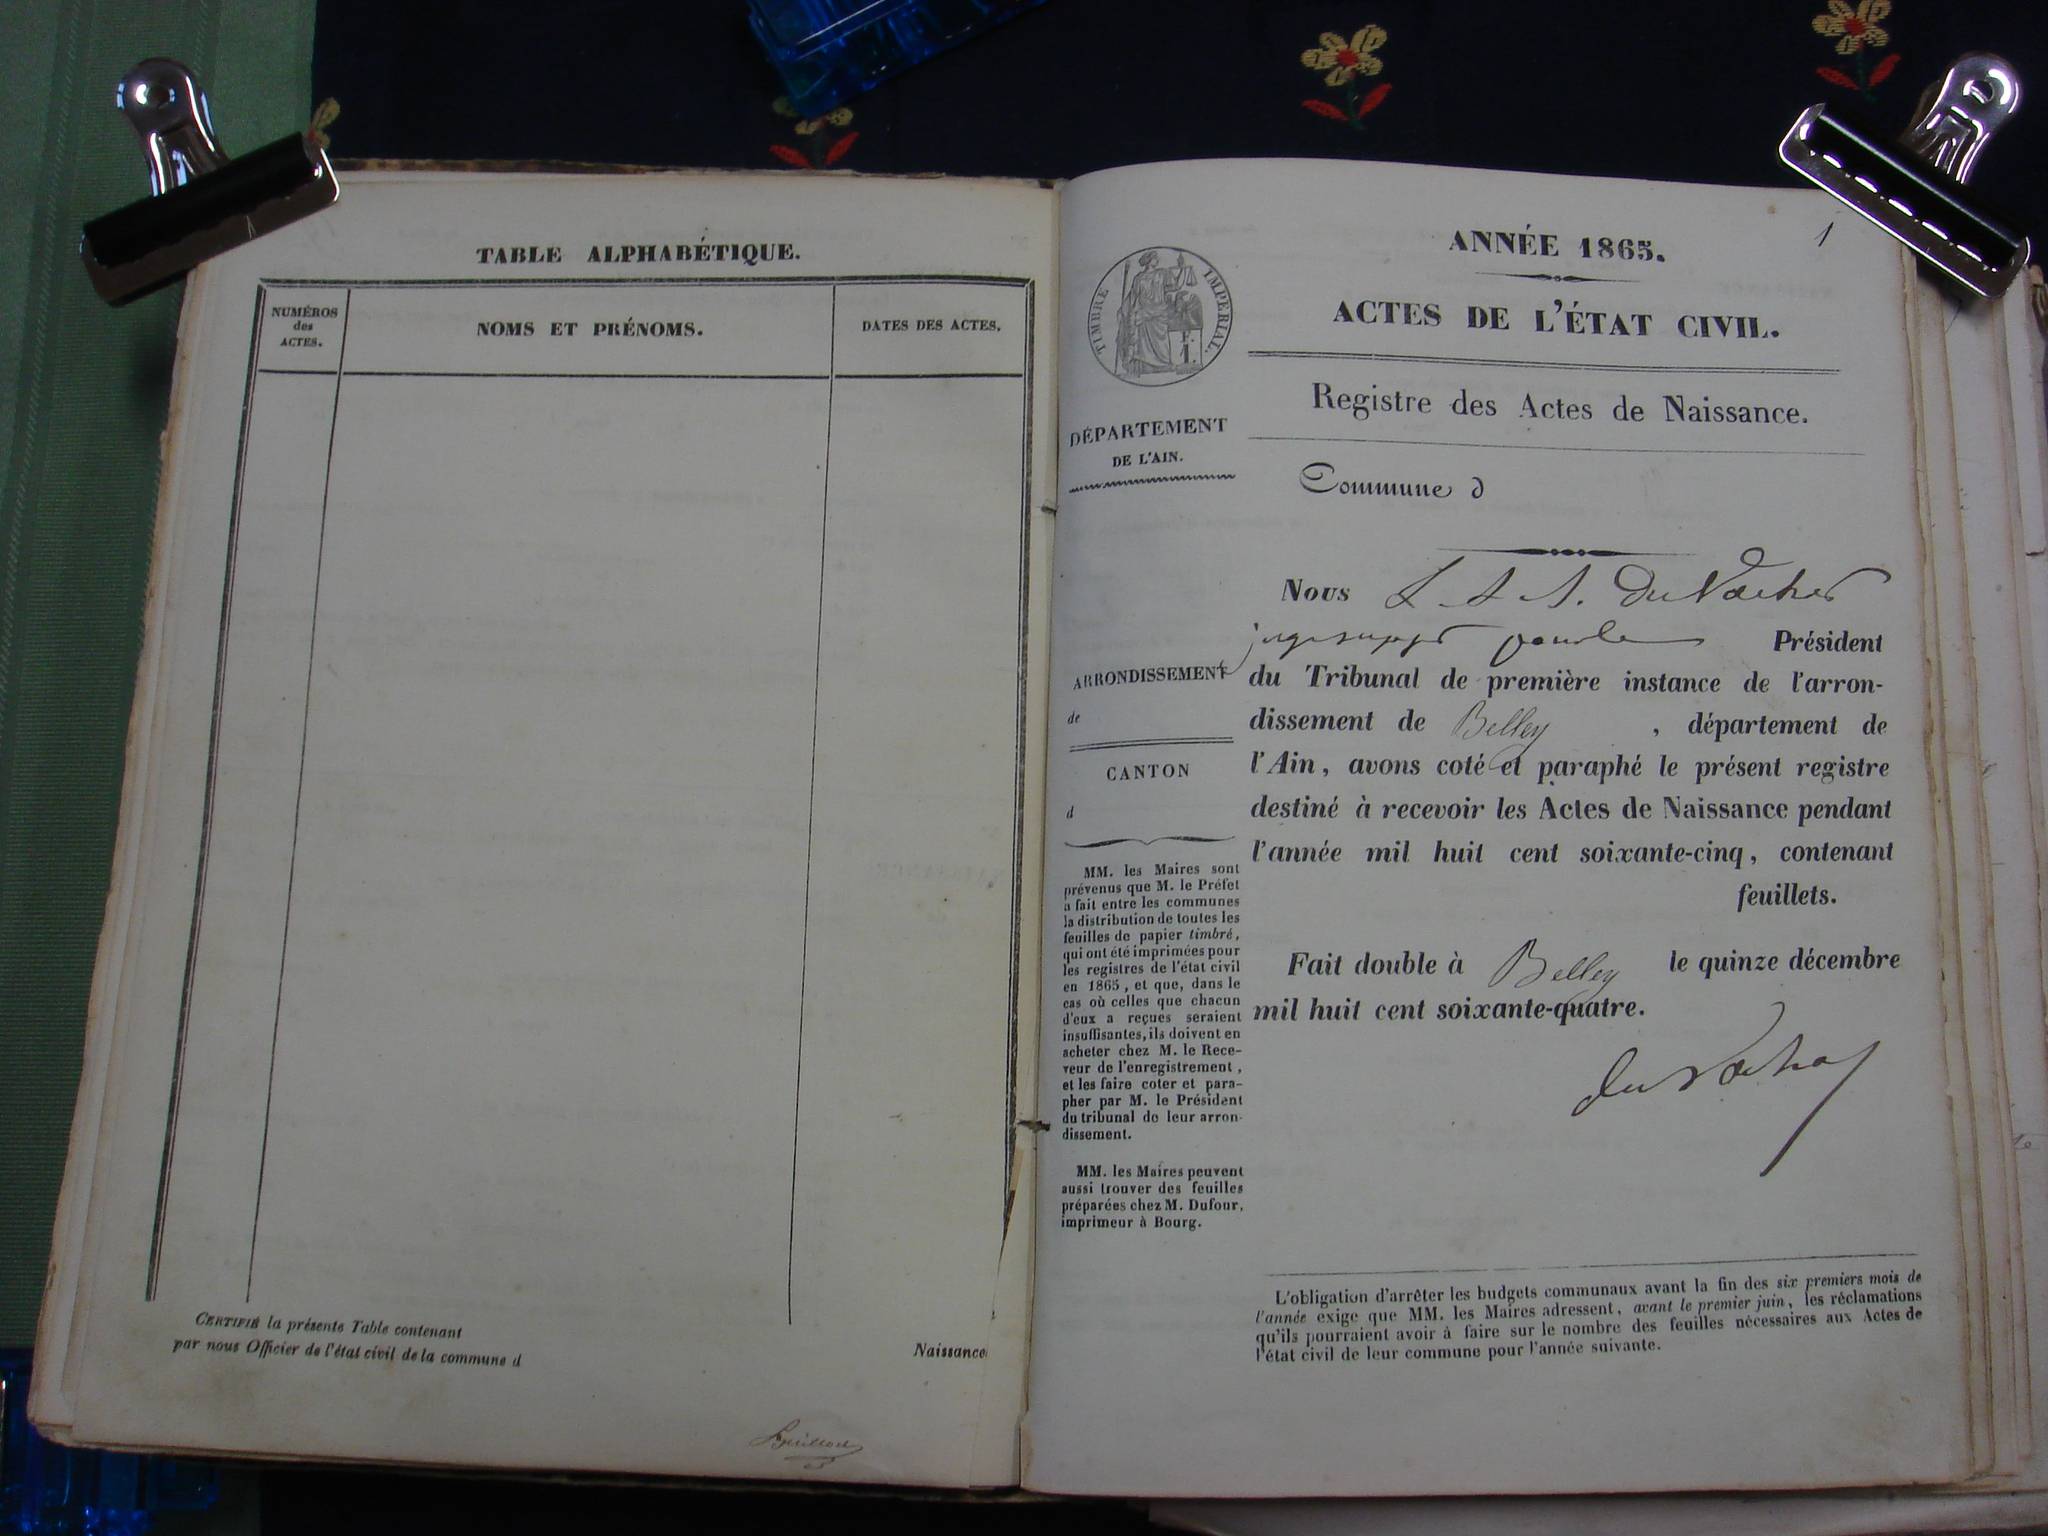 TABLE ALPHABÉTIQUE.
NUMÉROS
des
ACTES.
NOMS ET PRÉNOMS.
DATES DES ACTES.
CERTIFIÉ la présente Table contenant
Naissance
par nous Officier de l'état civil de la commune d
1
ANNÉE 1865.
ACTES DE L'ÉTAT CIVIL.
TIMBRE IMPÉRIAL.
F.
1.
Registre des Actes de Naissance.
DÉPARTEMENT
DE L'AIN.
Commune d
ARRONDISSEMENT
de
CANTON
d
MM. les Maires sont
prévenus que M. le Préfet
a fait entre les communes
la distribution de toutes les
feuilles de papier timbré,
qui ont été imprimées pour
les registres de l'état civil
en 1865, et que, dans le
cas où celles que chacun
d'eux a reçues seraient
insuffisantes, ils doivent en
acheter chez M. le Rece-
veur de l'enregistrement,
et les faire coter et para-
pher par M. le Président
du tribunal de leur arron-
dissement.
MM. les Maires peuvent
aussi trouver des feuilles
préparées chez M. Dufour,
imprimeur à Bourg.
Nous
Président
du Tribunal de première instance de l'arron-
dissement de Belley, département de
l'Ain, avons coté et paraphé le présent registre
destiné à recevoir les Actes de Naissance pendant
l'année mil huit cent soixante-cinq, contenant
feuillets.
Fait double à Belley le quinze décembre
mil huit cent soixante-quatre.
L'obligation d'arrêter les budgets communaux avant la fin des six premiers mois de
l'année exige que MM. les Maires adressent, avant le premier juin, les réclamations
qu'ils pourraient avoir à faire sur le nombre des feuilles nécessaires aux Actes de
l'état civil de leur commune pour l'année suivante.